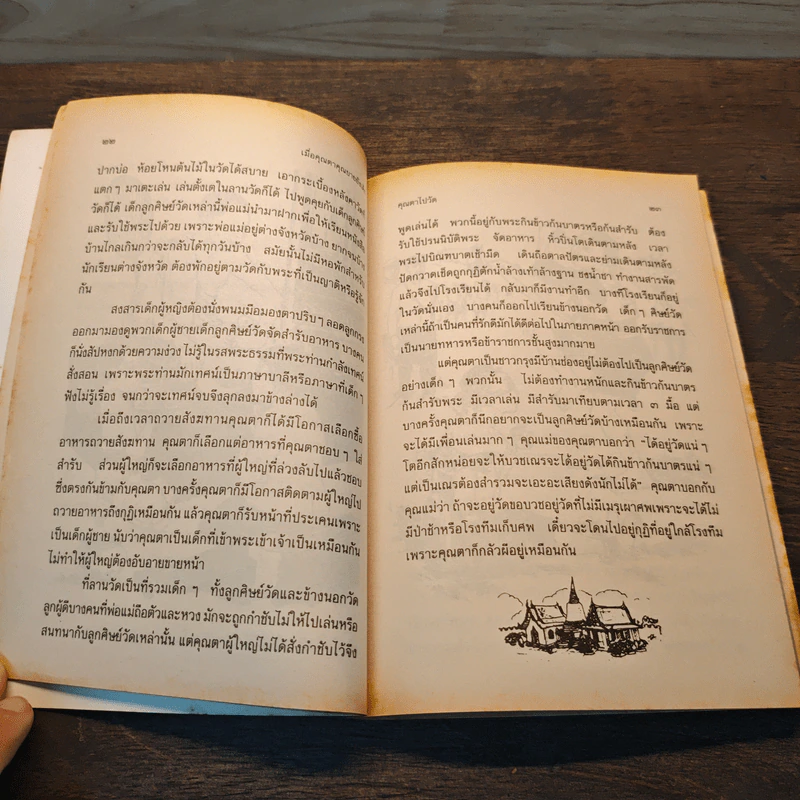 ๒๒
เมื่อคุณตาคุณยายยังเด็ก
ปากบ่อ ห้อยโหนต้นไม้ในวัดได้สบาย เอากระเบื้องหลังคาวัดที่
แตกๆ มาเตะเล่น เล่นตั้งเตในลานวัดก็ได้ ไปพูดคุยกับเด็กลูกศิษย์
วัดก็ได้ เด็กลูกศิษย์วัดเหล่านี้พ่อแม่นำมาฝากเพื่อให้เรียนหนังสือ
และรับใช้พระไปด้วย เพราะพ่อแม่อยู่ต่างจังหวัดบ้าง ยากจนบ้าง
บ้านไกลเกินกว่าจะกลับได้ทุกวันบ้าง สมัยนั้นไม่มีหอพักสำหรับ
นักเรียนต่างจังหวัด ต้องพักอยู่ตามวัดกับพระที่เป็นญาติหรือรู้จัก
กัน
สงสารเด็กผู้หญิงต้องนั่งพนมมือมองตาปริบๆ ลอดลูกกรง
ออกมามองดูพวกเด็กผู้ชายเด็กลูกศิษย์วัดจัดสำรับอาหาร บางคน
ก็นั่งสัปหงกด้วยความง่วง ไม่รู้ในรสพระธรรมที่พระท่านกำลังเทศน์
สั่งสอน เพราะพระท่านมักเทศน์เป็นภาษาบาลีหรือภาษาที่เด็กๆ
ฟังไม่รู้เรื่อง จนกว่าจะเทศน์จบจึงลุกลงมาข้างล่างได้
เมื่อถึงเวลาถวายสังฆทานคุณตาก็ได้มีโอกาสเลือกซื้อ
อาหารถวายสังฆทาน คุณตาก็เลือกแต่อาหารที่คุณตาชอบๆ ใส่
สำรับ ส่วนผู้ใหญ่ก็จะเลือกอาหารที่ผู้ใหญ่ที่ล่วงลับไปแล้วชอบ
ซึ่งตรงกันข้ามกับคุณตา บางครั้งคุณตาก็มีโอกาสติดตามผู้ใหญ่ไป
ถวายอาหารถึงกุฏิเหมือนกัน แล้วคุณตาก็รับหน้าที่ประเคนเพราะ
เป็นเด็กผู้ชาย นับว่าคุณตาเป็นเด็กที่เข้าพระเข้าเจ้าเป็นเหมือนกัน
ไม่ทำให้ผู้ใหญ่ต้องอับอายขายหน้า
ที่ลานวัดเป็นที่รวมเด็กๆ ทั้งลูกศิษย์วัดและข้างนอกวัด
ลูกผู้ดีบางคนที่พ่อแม่ถือตัวและหวง มักจะถูกกำชับไม่ให้ไปเล่นหรือ
สนทนากับลูกศิษย์วัดเหล่านั้น แต่คุณตาผู้ใหญ่ไม่ได้สั่งกำชับไว้จึง
คุณตาไปวัด
๒๓
พูดเล่นได้ พวกนี้อยู่กับพระกินข้าวก้นบาตรหรือก้นสำรับ ต้อง
รับใช้ปรนนิบัติพระ จัดอาหาร หิ้วปิ่นโตเดินตามหลัง เวลา
พระไปบิณฑบาตเช้ามืด เดินถือตาลปัตรและย่ามเดินตามหลัง
ปัดกวาดเช็ดถูกุฏิตักน้ำล้างเท้าล้างฐาน ชงน้ำชา ทำงานสารพัด
แล้วจึงไปโรงเรียนได้ กลับมาก็มีงานทำอีก บางทีโรงเรียนก็อยู่
ในวัดนั่นเอง บางคนก็ออกไปเรียนข้างนอกวัด เด็กๆ ศิษย์วัด
เหล่านี้ถ้าเป็นคนที่รักดีมักได้ดีต่อไปในภายภาคหน้า ออกรับราชการ
เป็นนายทหารหรือข้าราชการชั้นสูงมากมาย
แต่คุณตาเป็นชาวกรุงมีบ้านช่องอยู่ไม่ต้องไปเป็นลูกศิษย์วัด
อย่างเด็กๆ พวกนั้น ไม่ต้องทำงานหนักและกินข้าวก้นบาตร
ก้นสำรับพระ มีเวลาเล่น มีสำรับมาเทียบตามเวลา ๓ มื้อ แต่
บางครั้งคุณตาก็นึกอยากจะเป็นลูกศิษย์วัดบ้างเหมือนกัน เพราะ
จะได้มีเพื่อนเล่นมากๆ คุณแม่ของคุณตาบอกว่า "ได้อยู่วัดแน่ๆ
โตอีกสักหน่อยจะให้บวชเณรจะได้อยู่วัดได้กินข้าวก้นบาตรแน่ๆ
แต่เป็นเณรต้องสำรวมจะเอะอะเสียงดังนักไม่ได้" คุณตาบอกกับ
คุณแม่ว่า ถ้าจะอยู่วัดขอบวชอยู่วัดที่ไม่มีเมรุเผาศพเพราะจะได้ไม่
มีป่าช้าหรือโรงทึมเก็บศพ เดี๋ยวจะโดนไปอยู่กุฏิที่อยู่ใกล้โรงทึม
เพราะคุณตาก็กลัวผีอยู่เหมือนกัน